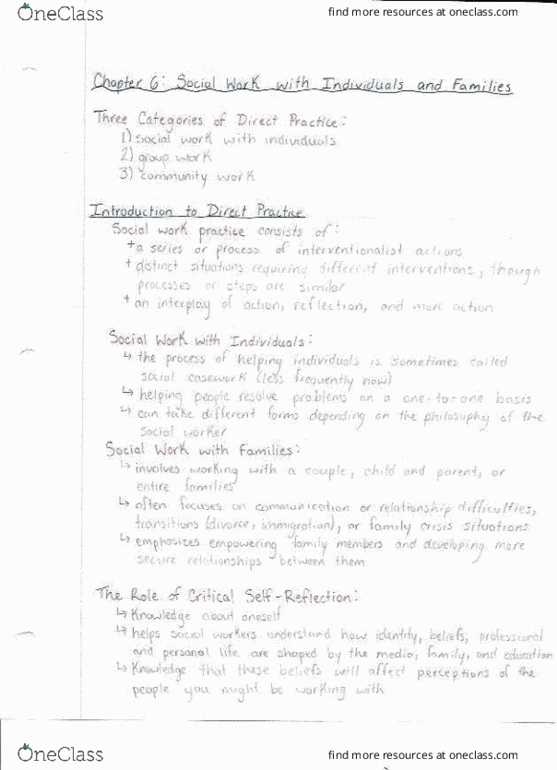 OneClass
find more resources at oneclass.com
Chapter 6: Social Work with Individuals and Families
Three Categories of Direct Practice:
1) social work with individuals
2) group work
3) community work
Introduction to Direct Practice
Social work practice consists of:
+ a series or process of interventionalist actions
+ distinct situations requiring different interventions, though
processes or steps are similar
+ an interplay of action, reflection, and more action
Social Work with Individuals:
↳ the process of helping individuals is sometimes called
social casework (less frequently now)
↳ helping people resolve problems on a one-to-one basis
↳ can take different forms depending on the philosophy of the
social worker
Social Work with Families:
↳ involves working with a couple, child and parent, or
entire families
↳ often focuses on communication or relationship difficulties,
transitions (divorce, immigration), or family crisis situations
↳ emphasizes empowering family members and developing more
secure relationships between them
The Role of Critical Self-Reflection:
↳ Knowledge about oneself
↳ helps social workers understand how identity, beliefs, professional
and personal life are shaped by the media, family, and education
↳ Knowledge that these beliefs will affect perceptions of the
people you might be working with
OneClass
find more resources at oneclass.com